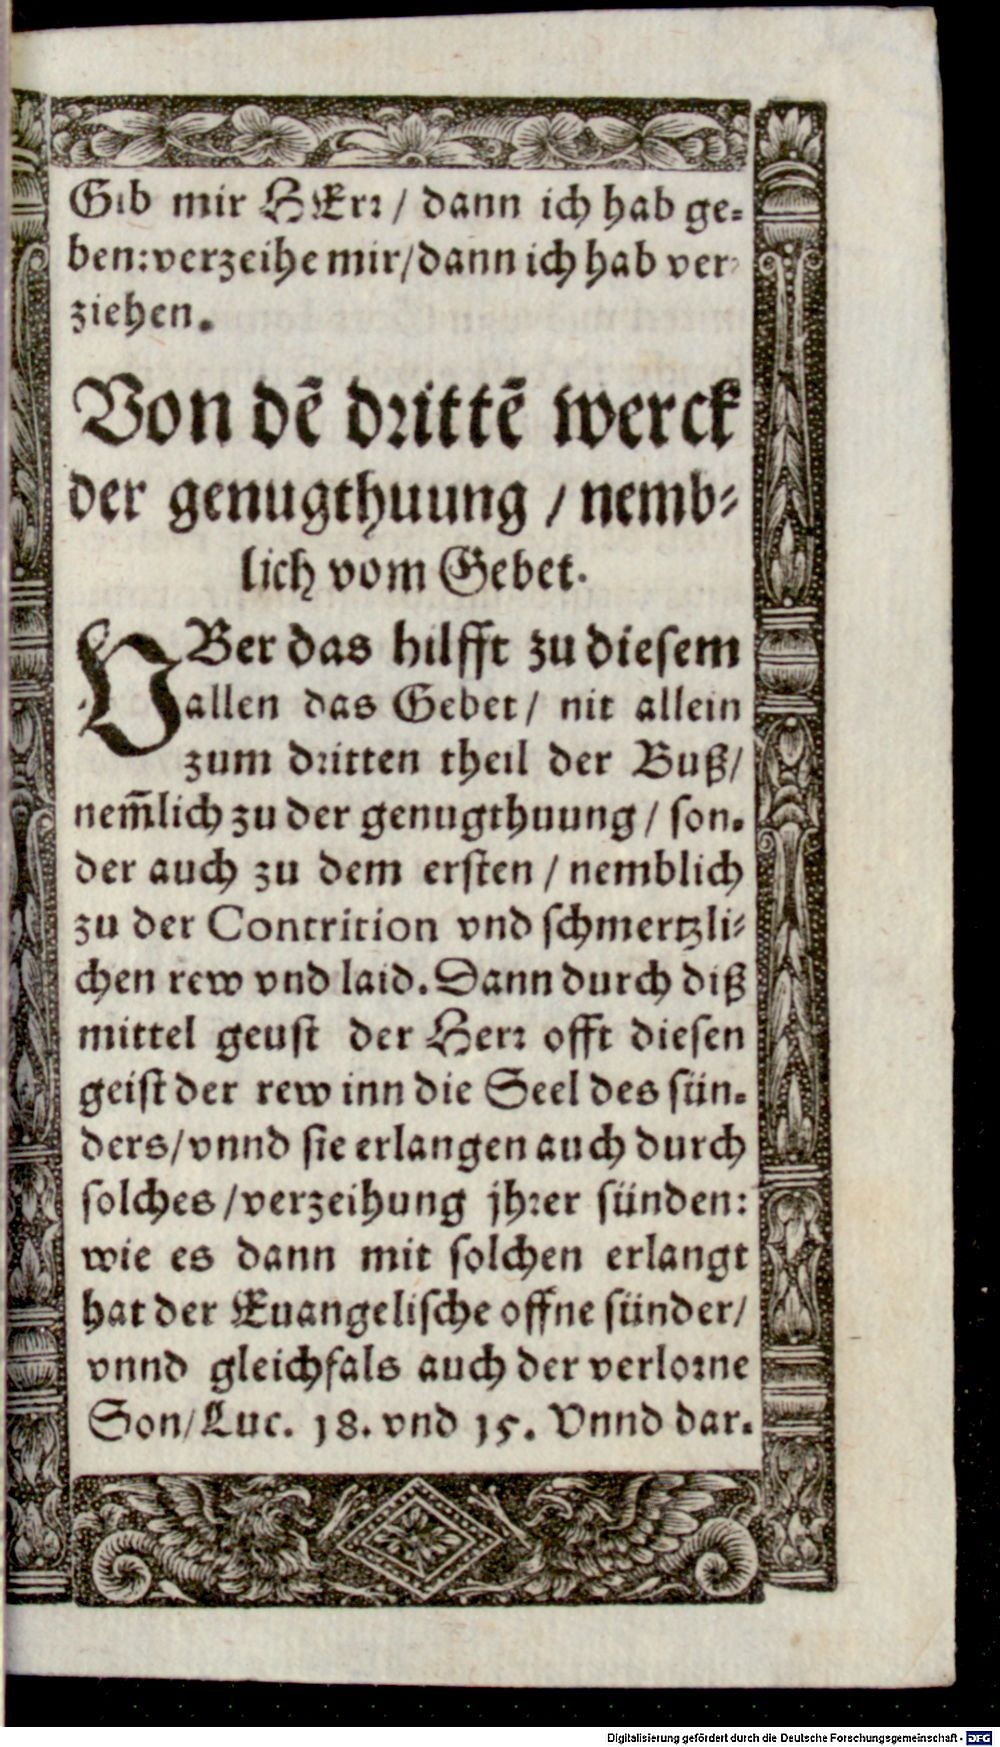 Gib mir HErr / dann ich hab ge⸗
ben: verzeihe mir/ dann ich hab ver⸗
ziehen.
Von dē drittē werck
der genugthuung / nemb⸗
lich vom Gebet.
VBer das hilfft zu diesem
allen das Gebet/ nit allein
zum dritten theil der Buß/
nem̄lich zu der genugthuung / son⸗
der auch zu dem ersten / nemblich
zu der Contrition vnd schmertzli⸗
chen rew vnd laid. Dann durch diß
mittel geust der Herr offt diesen
geist der rew inn die Seel des sün⸗
ders/ vnnd sie erlangen auch durch
solches / verzeihung jhrer sünden:
wie es dann mit solchen erlangt
hat der Euangelische offne sünder/
vnnd gleichfals auch der verlorne
Son/ Luc. 18. vnd 15. Vnnd dar⸗
Digitalisierung gefördert durch die Deutsche Forschungsgemeinschaft - DFG